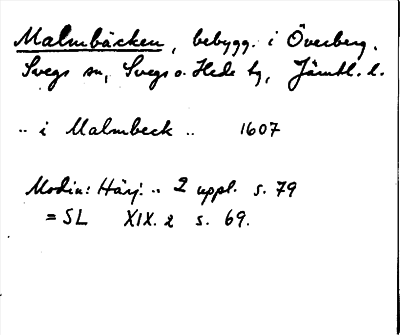 Malmbäcken, bebygg. i Överberg.
Svegs sn, Svegs o. Hede tg, Jämtl. l.
.. i Malmbeck .. 1607
Modin: Härj. .. 2 uppl. s. 79
= SL XIX. 2 s. 69.